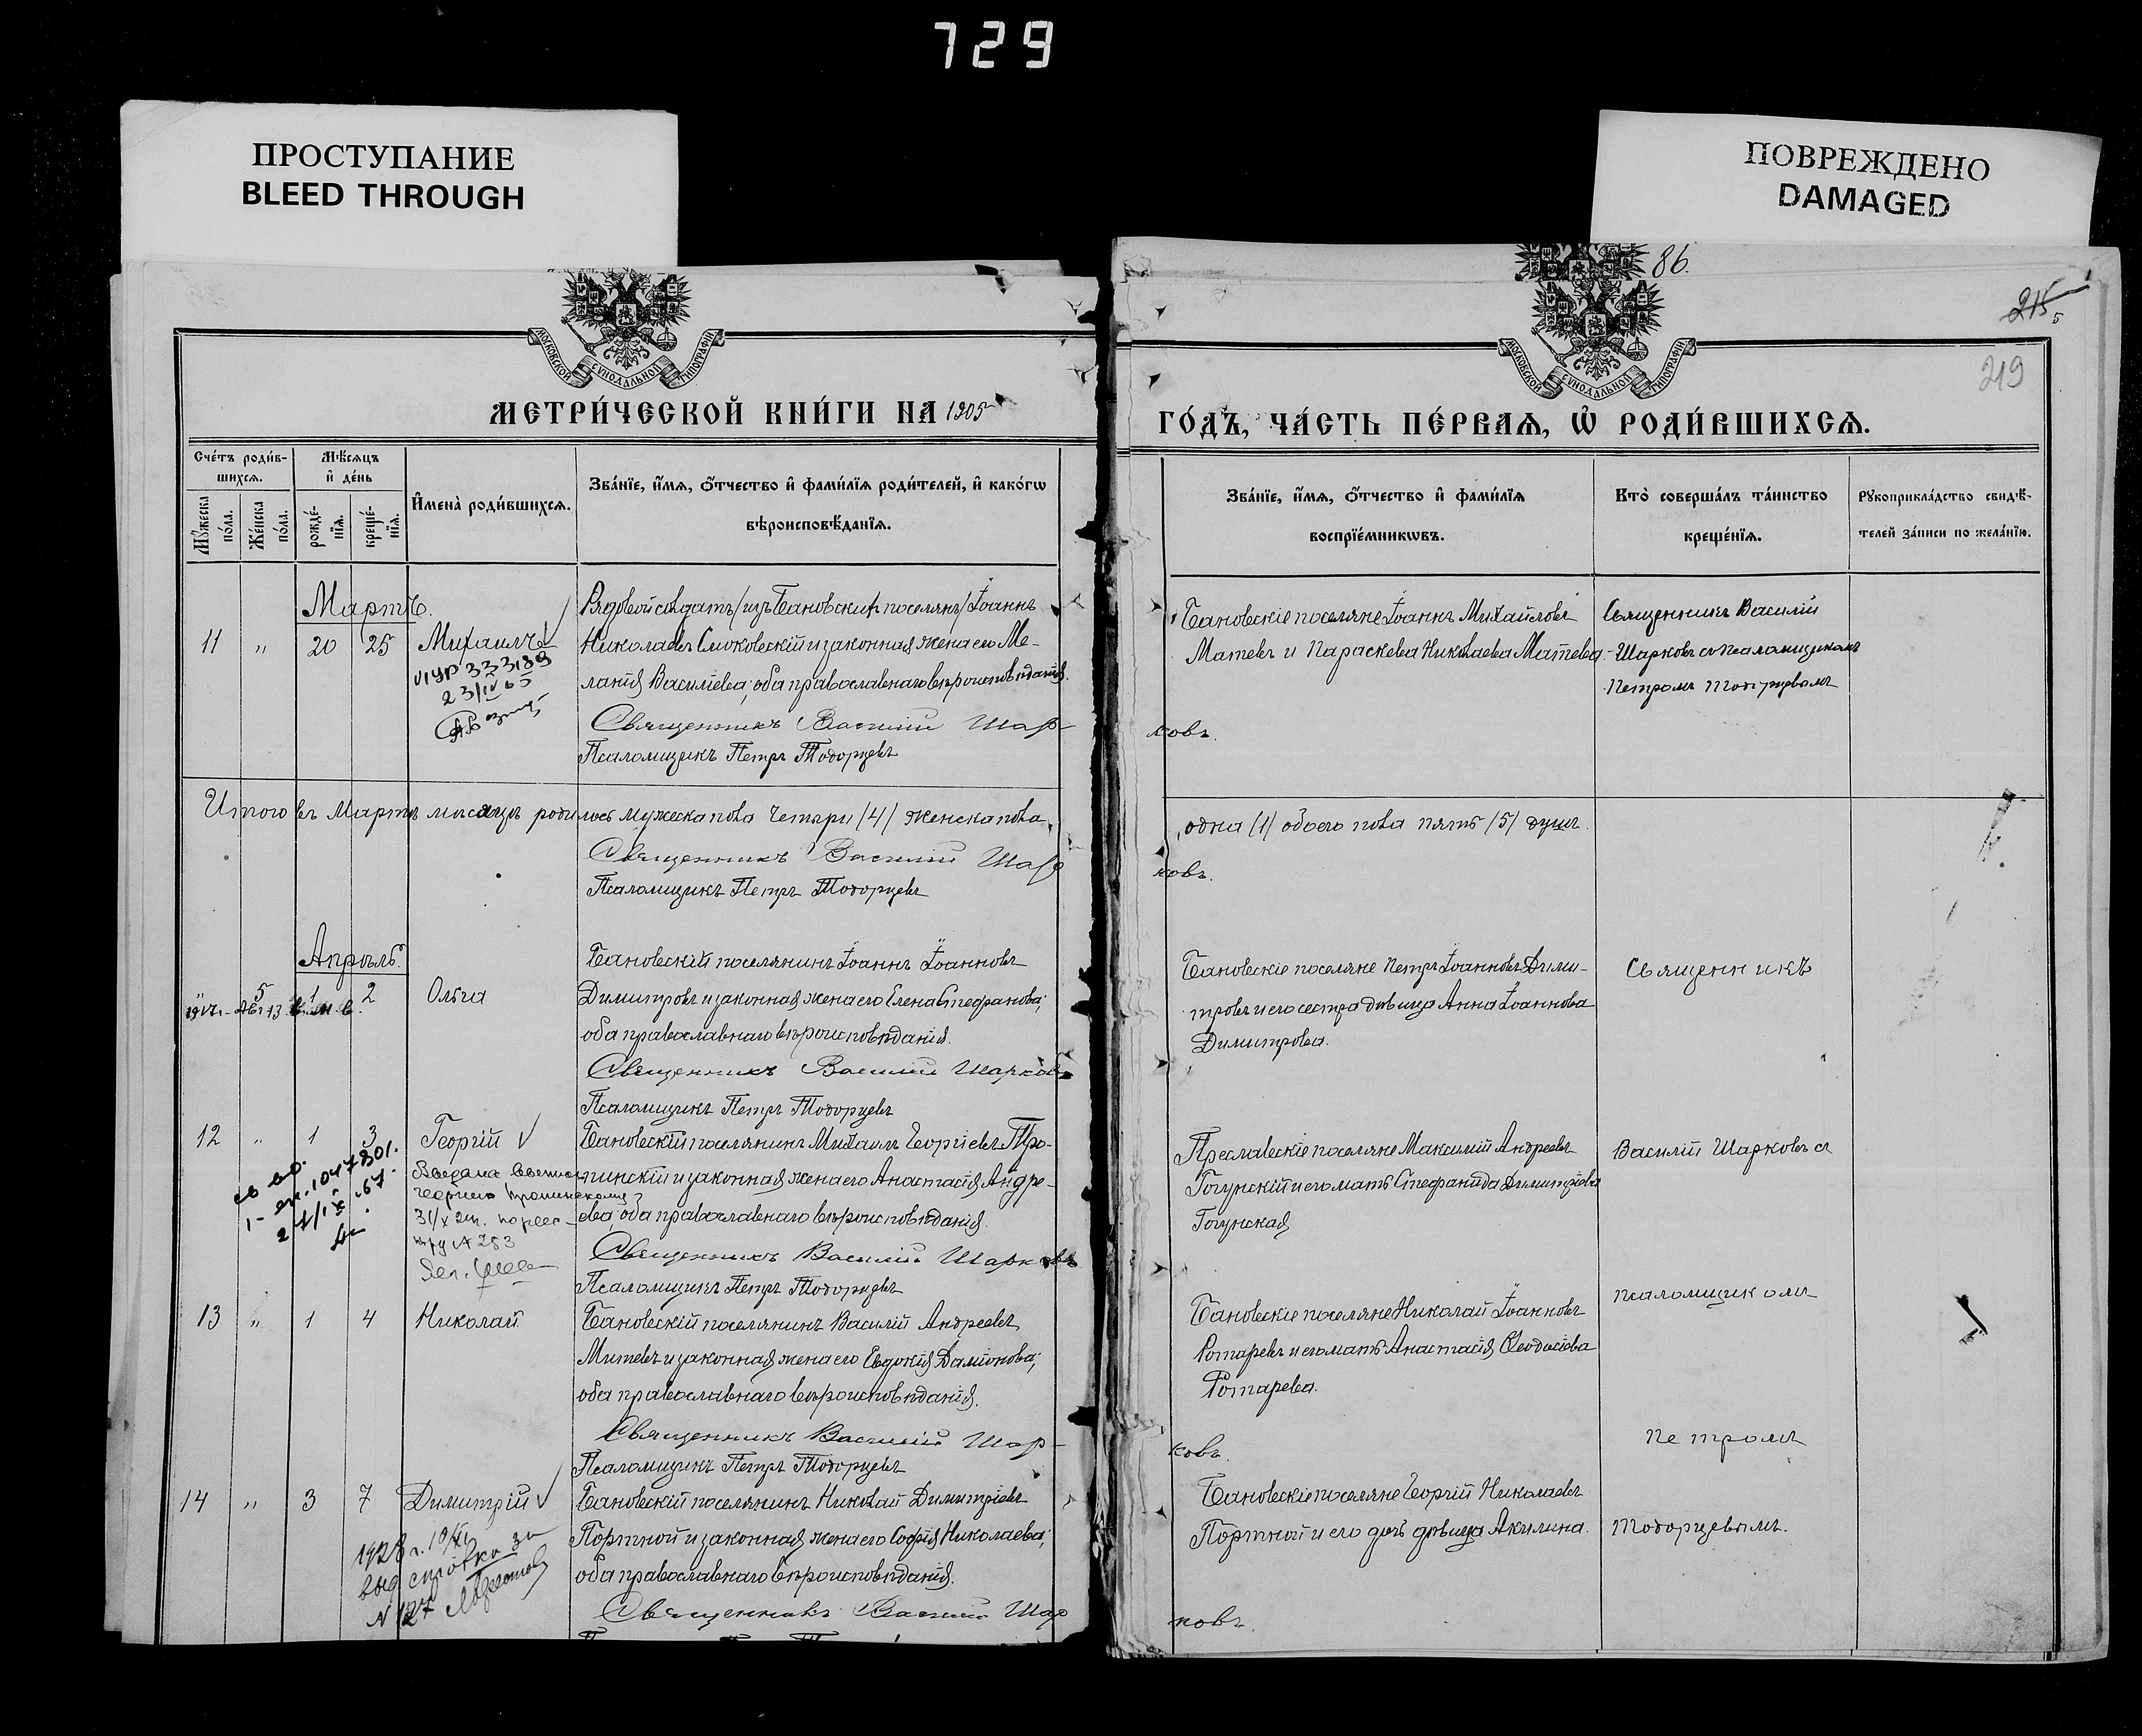 729
ПРОСТУПАНИЕ
BLEED THROUGH
ПОВРЕЖДЕНО
DAMAGED
86.
215
219
МОСКОВСКОЙ СѴНОДАЛЬНОЙ ТИПОГРАФІИ
МОСКОВСКОЙ СѴНОДАЛЬНОЙ ТИПОГРАФІИ
МЕТРИ́ЧЕСКОЙ КНИ́ГИ НА 1905
ГО́ДЪ, ЧА́СТЬ ПЕ́РВАѦ, Ѡ҆ РОДИ́ВШИХСѦ.
Сче́тъ роди́в-
шихсѧ.
Мѣ́сѧцъ
и҆ де́нь
Мꙋ́жеска
по́ла.
Же́нска
по́ла.
рожде́-
нїѧ.
креще́-
нїѧ.
И҆мена̀ роди́вшихсѧ.
Зва́нїе, и҆́мѧ, ѻ҆́тчество и҆ фами́лїѧ роди́телей, и҆ како́гѡ
вѣроисповѣ́данїѧ.
Зва́нїе, и҆́мѧ, ѻ҆́тчество и҆ фами́лїѧ
воспрїе́мникѡвъ.
Кто̀ соверша́лъ та́инство
креще́нїѧ.
Рꙋкоприкла́дство свидѣ́-
телей за́писи по жела́нїю.
Мартъ.
11 " 20 25 Михаилъ
333189
Рядовой солдатъ /изъ Бановскихъ поселянъ/ Іоаннъ
Николаевъ Слоковскій и законная жена его Ме-
ланія Василіева; оба православнаго вѣроисповѣданія.
Священникъ Василій Шар-
ковъ.
Псаломщикъ Петръ Тодорцевъ
Бановскіе поселяне Іоаннъ Михайловъ
Матевъ и Параскева Николаева Матева.
Священникъ Василій
Шарковъ съ псаломщикомъ
Петромъ Тодорцевымъ
Итого въ Мартѣ мѣсяцѣ родилось мужеска пола четыре /4/ женска пола
одна /1/ обоего пола пять /5/ душъ.
Священникъ Василій Шар
ковъ.
Псаломщикъ Петръ Тодорцевъ
Апрѣль.
5 1 2 Ольга
Бановскій поселянинъ Іоаннъ Іоанновъ
Димитровъ и законная жена его Елена Стефанова;
оба православнаго вѣроисповѣданія.
Священникъ Василій Шарковъ
Псаломщикъ Петръ Тодорцевъ
Бановскіе поселяне Петръ Іоанновъ Дими-
тровъ и его сестра дѣвица Анна Іоаннова
Димитрова.
Священникъ
12 " 1 3 Георгій
Бановскій поселянинъ Михаилъ Георгіевъ Тро-
пинскій и законная жена его Анастасія Андре-
ева; оба православнаго вѣроисповѣданія.
Священникъ Василій Шарковъ
Псаломщикъ Петръ Тодорцевъ
Преславскіе поселяне Максимъ Андреевъ
Гогунскій и его мать Стефанида Димитріева
Гогунская
Василій Шарковъ съ
13 " 1 4 Николай
Бановскій поселянинъ Василій Андреевъ
Митевъ и законная жена его Евдокія Даміонова;
оба православнаго вѣроисповѣданія.
Священникъ Василій Шар-
ковъ.
Псаломщикъ Петръ Тодорцевъ
Бановскіе поселяне Николай Іоанновъ
Ротаревъ и его мать Анастасія Ѳеодосіова
Ротарева.
псаломщикомъ
Петромъ
14 " 3 7 Димитрій
1928 г. 10/XI
выд справка за
N 127
Бановскій поселянинъ Николай Димитріевъ
Портной и законная жена его Софія Николаева;
оба православнаго вѣроисповѣданія.
Священникъ Василій Шар
ковъ.
Бановскіе поселяне Георгій Николаевъ
Портной и его дочь дѣвица Акилина.
Тодорцевымъ.